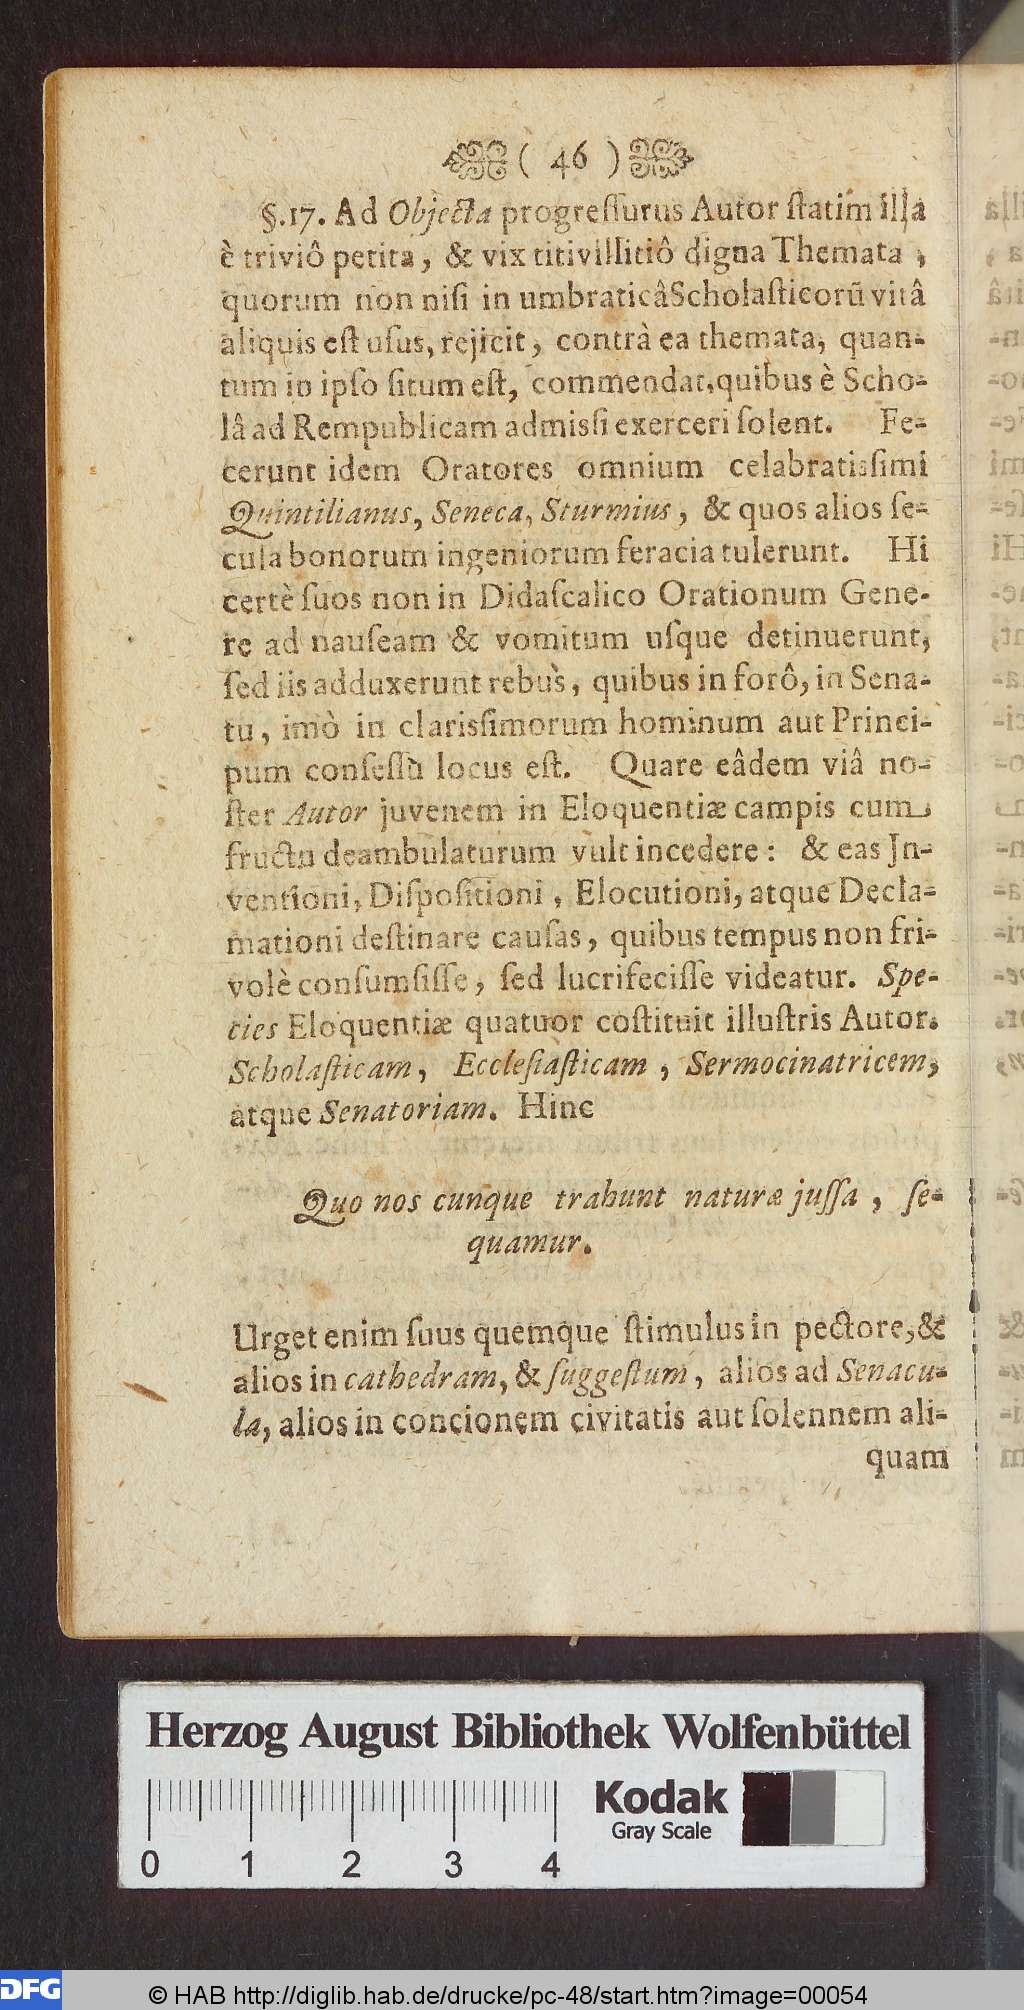 ( 46 )
§.17. Ad Objecta progreſſurus Autor ſtatim illa
è triviô petita, & vix titivillitiô digna Themata,
quorum non niſi in umbraticâ Scholaſticorũ vitâ
aliquis eſt uſus, rejicit, contrà ea themata, quan-
tum in ipſo ſitum eſt, commendat, quibus è Scho-
lâ ad Rempublicam admiſſi exerceri ſolent. Fe-
cerunt idem Oratores omnium celabratiſſimi
Quintilianus, Seneca, Sturmius, & quos alios ſe-
cula bonorum ingeniorum feracia tulerunt. Hi
certè ſuos non in Didaſcalico Orationum Gene-
re ad nauſeam & vomitum uſque detinuerunt,
ſed iis adduxerunt rebus, quibus in forô, in Sena-
tu, imò in clariſſimorum hominum aut Princi-
pum conſeſſu locus eſt. Quare eâdem viâ no-
ſter Autor juvenem in Eloquentiæ campis cum
fructu deambulaturum vult incedere: & eas Jn-
ventioni, Diſpoſitioni, Elocutioni, atque Decla-
mationi deſtinare cauſas, quibus tempus non fri-
volè conſumſiſſe, ſed lucrifeciſſe videatur. Spe-
cies Eloquentiæ quatuor coſtituit illuſtris Autor.
Scholaſticam, Eccleſiaſticam, Sermocinatricem,
atque Senatoriam. Hinc
Quo nos cunque trahunt naturæ juſſa, ſe-
quamur.
Urget enim ſuus quemque ſtimulus in pectore, &
alios in cathedram, & ſuggeſtum, alios ad Senacu-
la, alios in concionem civitatis aut ſolennem ali-
quam
Herzog August Bibliothek Wolfenbüttel
Kodak
Gray Scale
0 1 2 3 4
DFG © HAB http://diglib.hab.de/drucke/pc-48/start.htm?image=00054